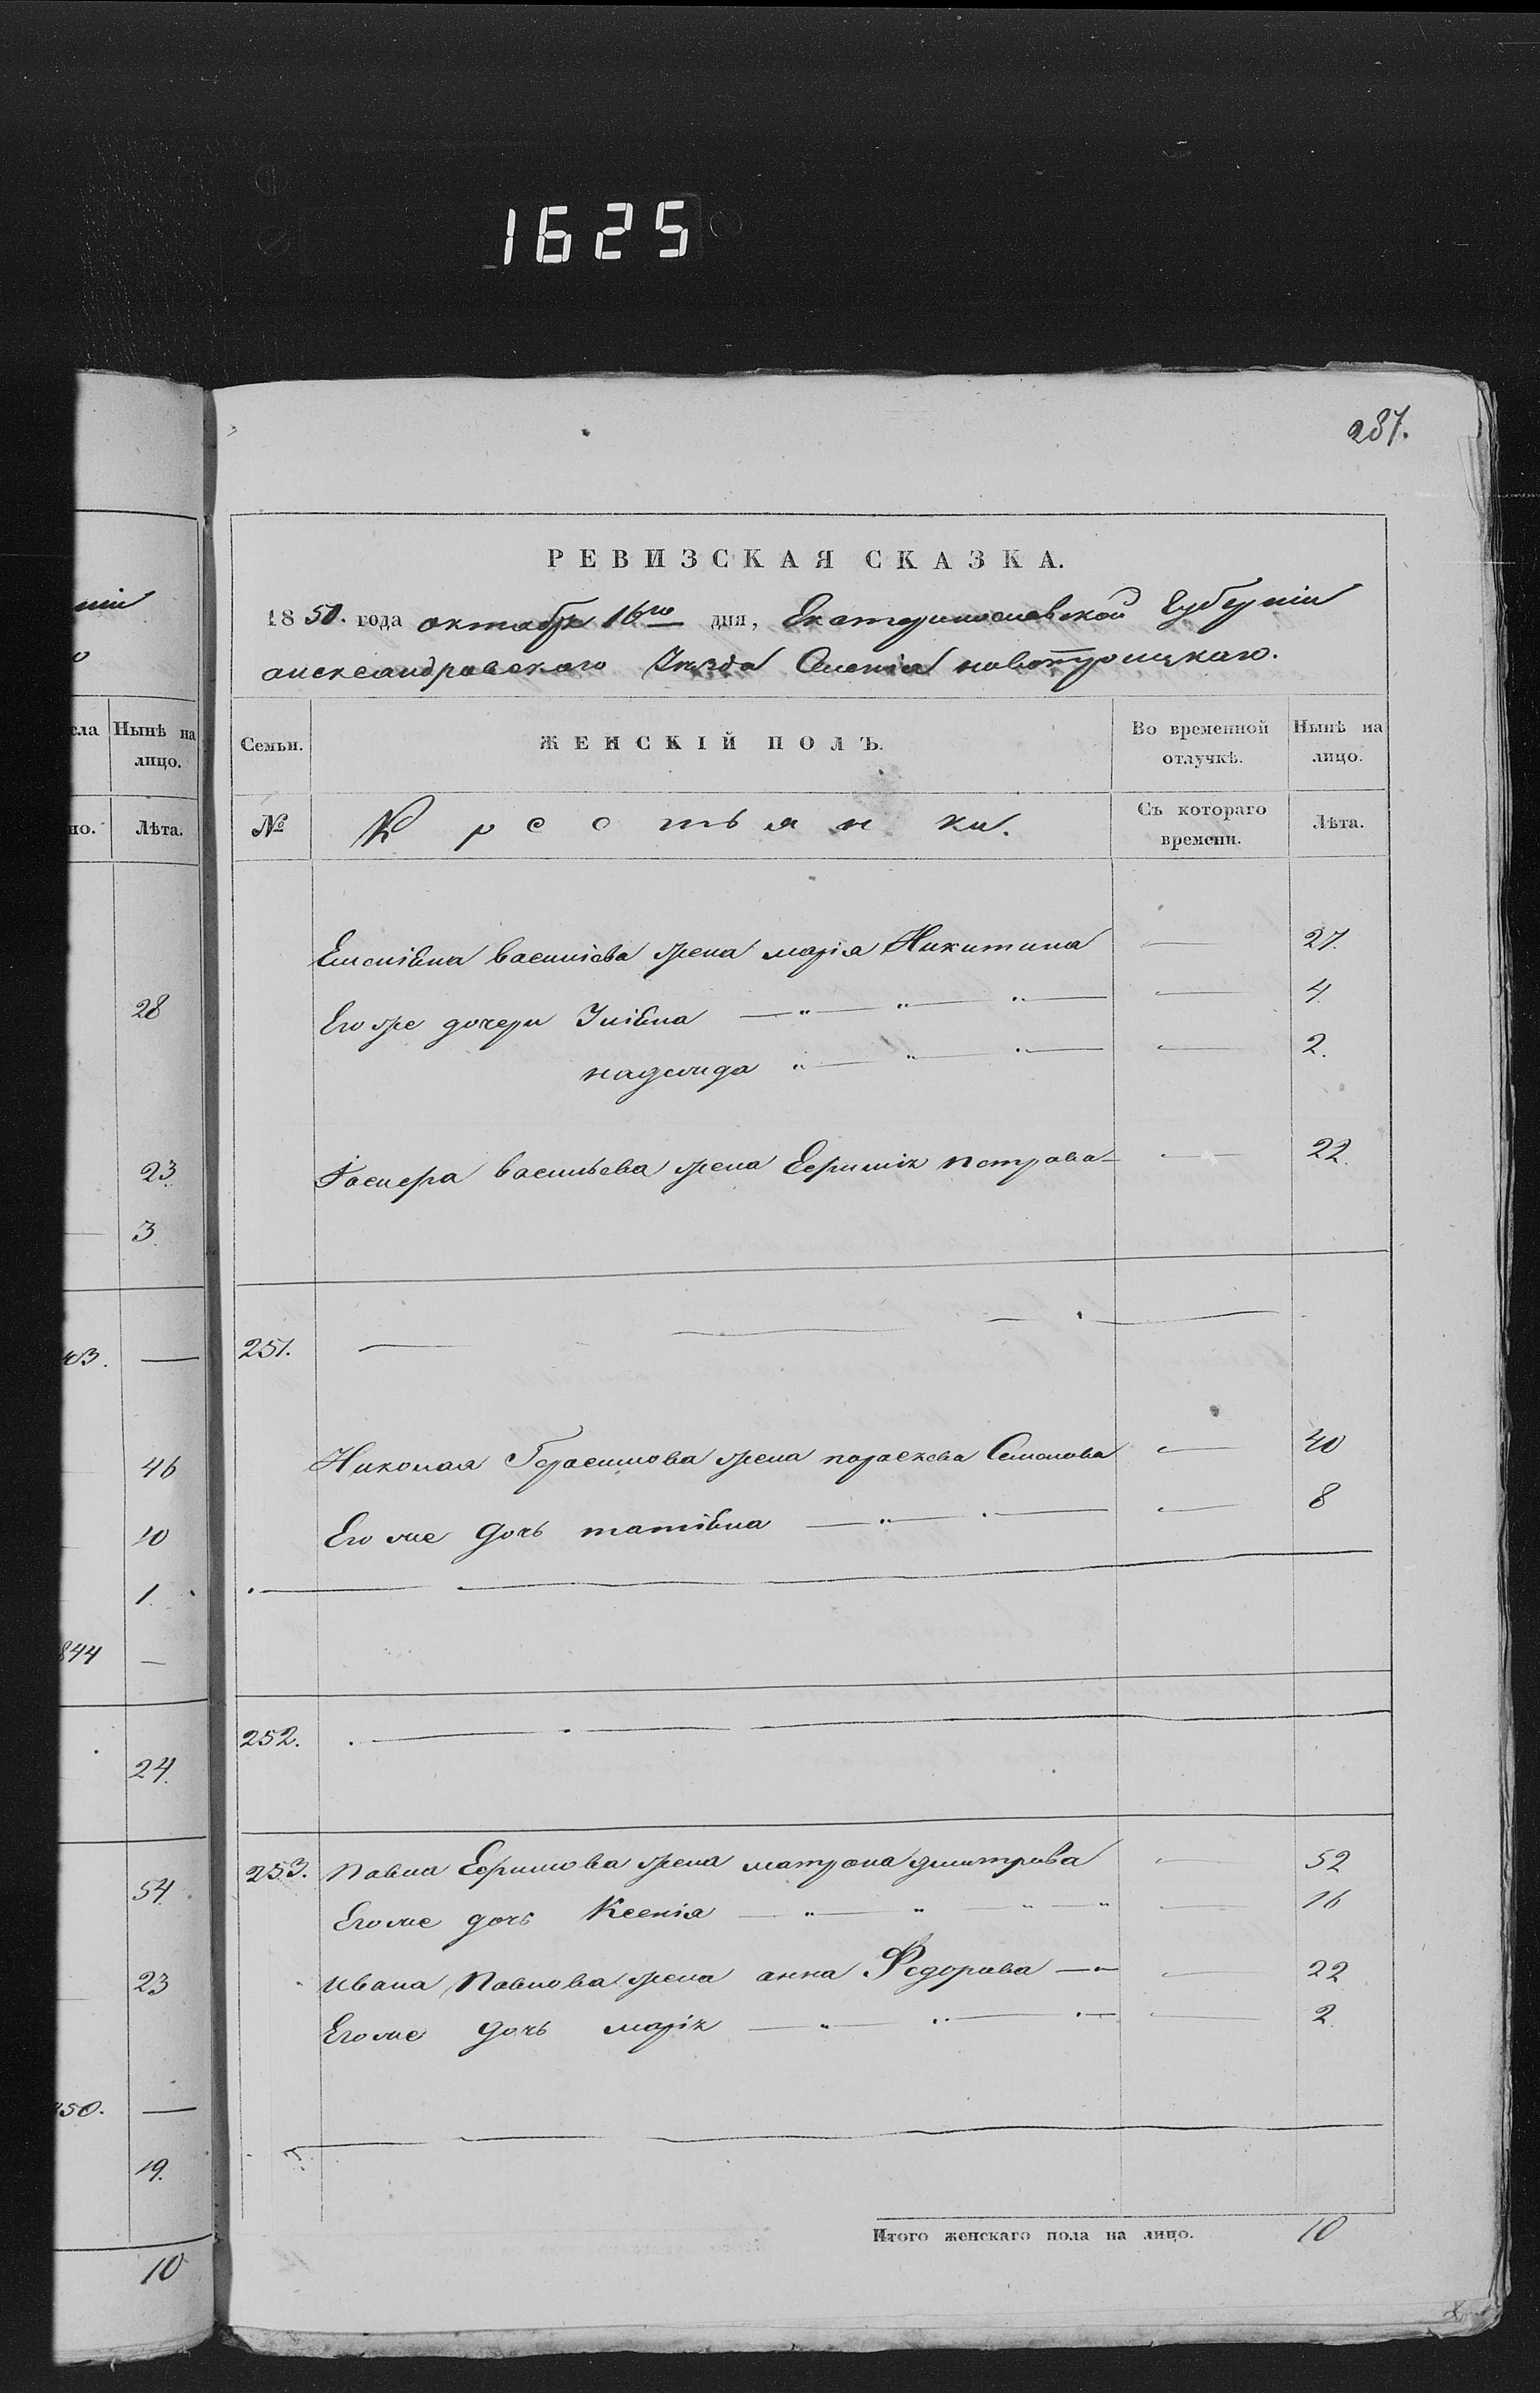 1625
287.
РЕВИЗСКАЯ СКАЗКА.
1850. года октабря 16го дня, Екатеринославской Губерніи
александровскаго Уѣзда Селенія новотроицкаго.
Семьи. ЖЕНСКІЙ ПОЛЪ. Во временной отлучкѣ. Нынѣ на лицо.
№ Крестьянки. Съ котораго времени. Лѣта.
василіева жена марія Никитина — 27.
Его же дочери Улібна — " — " — — 4.
надежда " — " — " — — 2.
васильева жена Ефимія петрова — — 22.
251. — — — —
Николая Герасимова жена параскева Семенова — 40
Его же дочь татіана — " — " — — 8
252. . — . — —
253. Павла Ефимова жена матрона дмитрова — 52
Его же дочь Ксенія — " — " — " — " — 16
Ивана Павлова жена анна Федорова — — 22
Его же дочь марія — " — " — " — — 2.
Итого женскаго пола на лицо. 10
ніи
о
сла Нынѣ на лицо.
но. Лѣта.
28
23.
3.
03. —
46
10
1.
844 —
24.
54.
23
50. —
19.
10